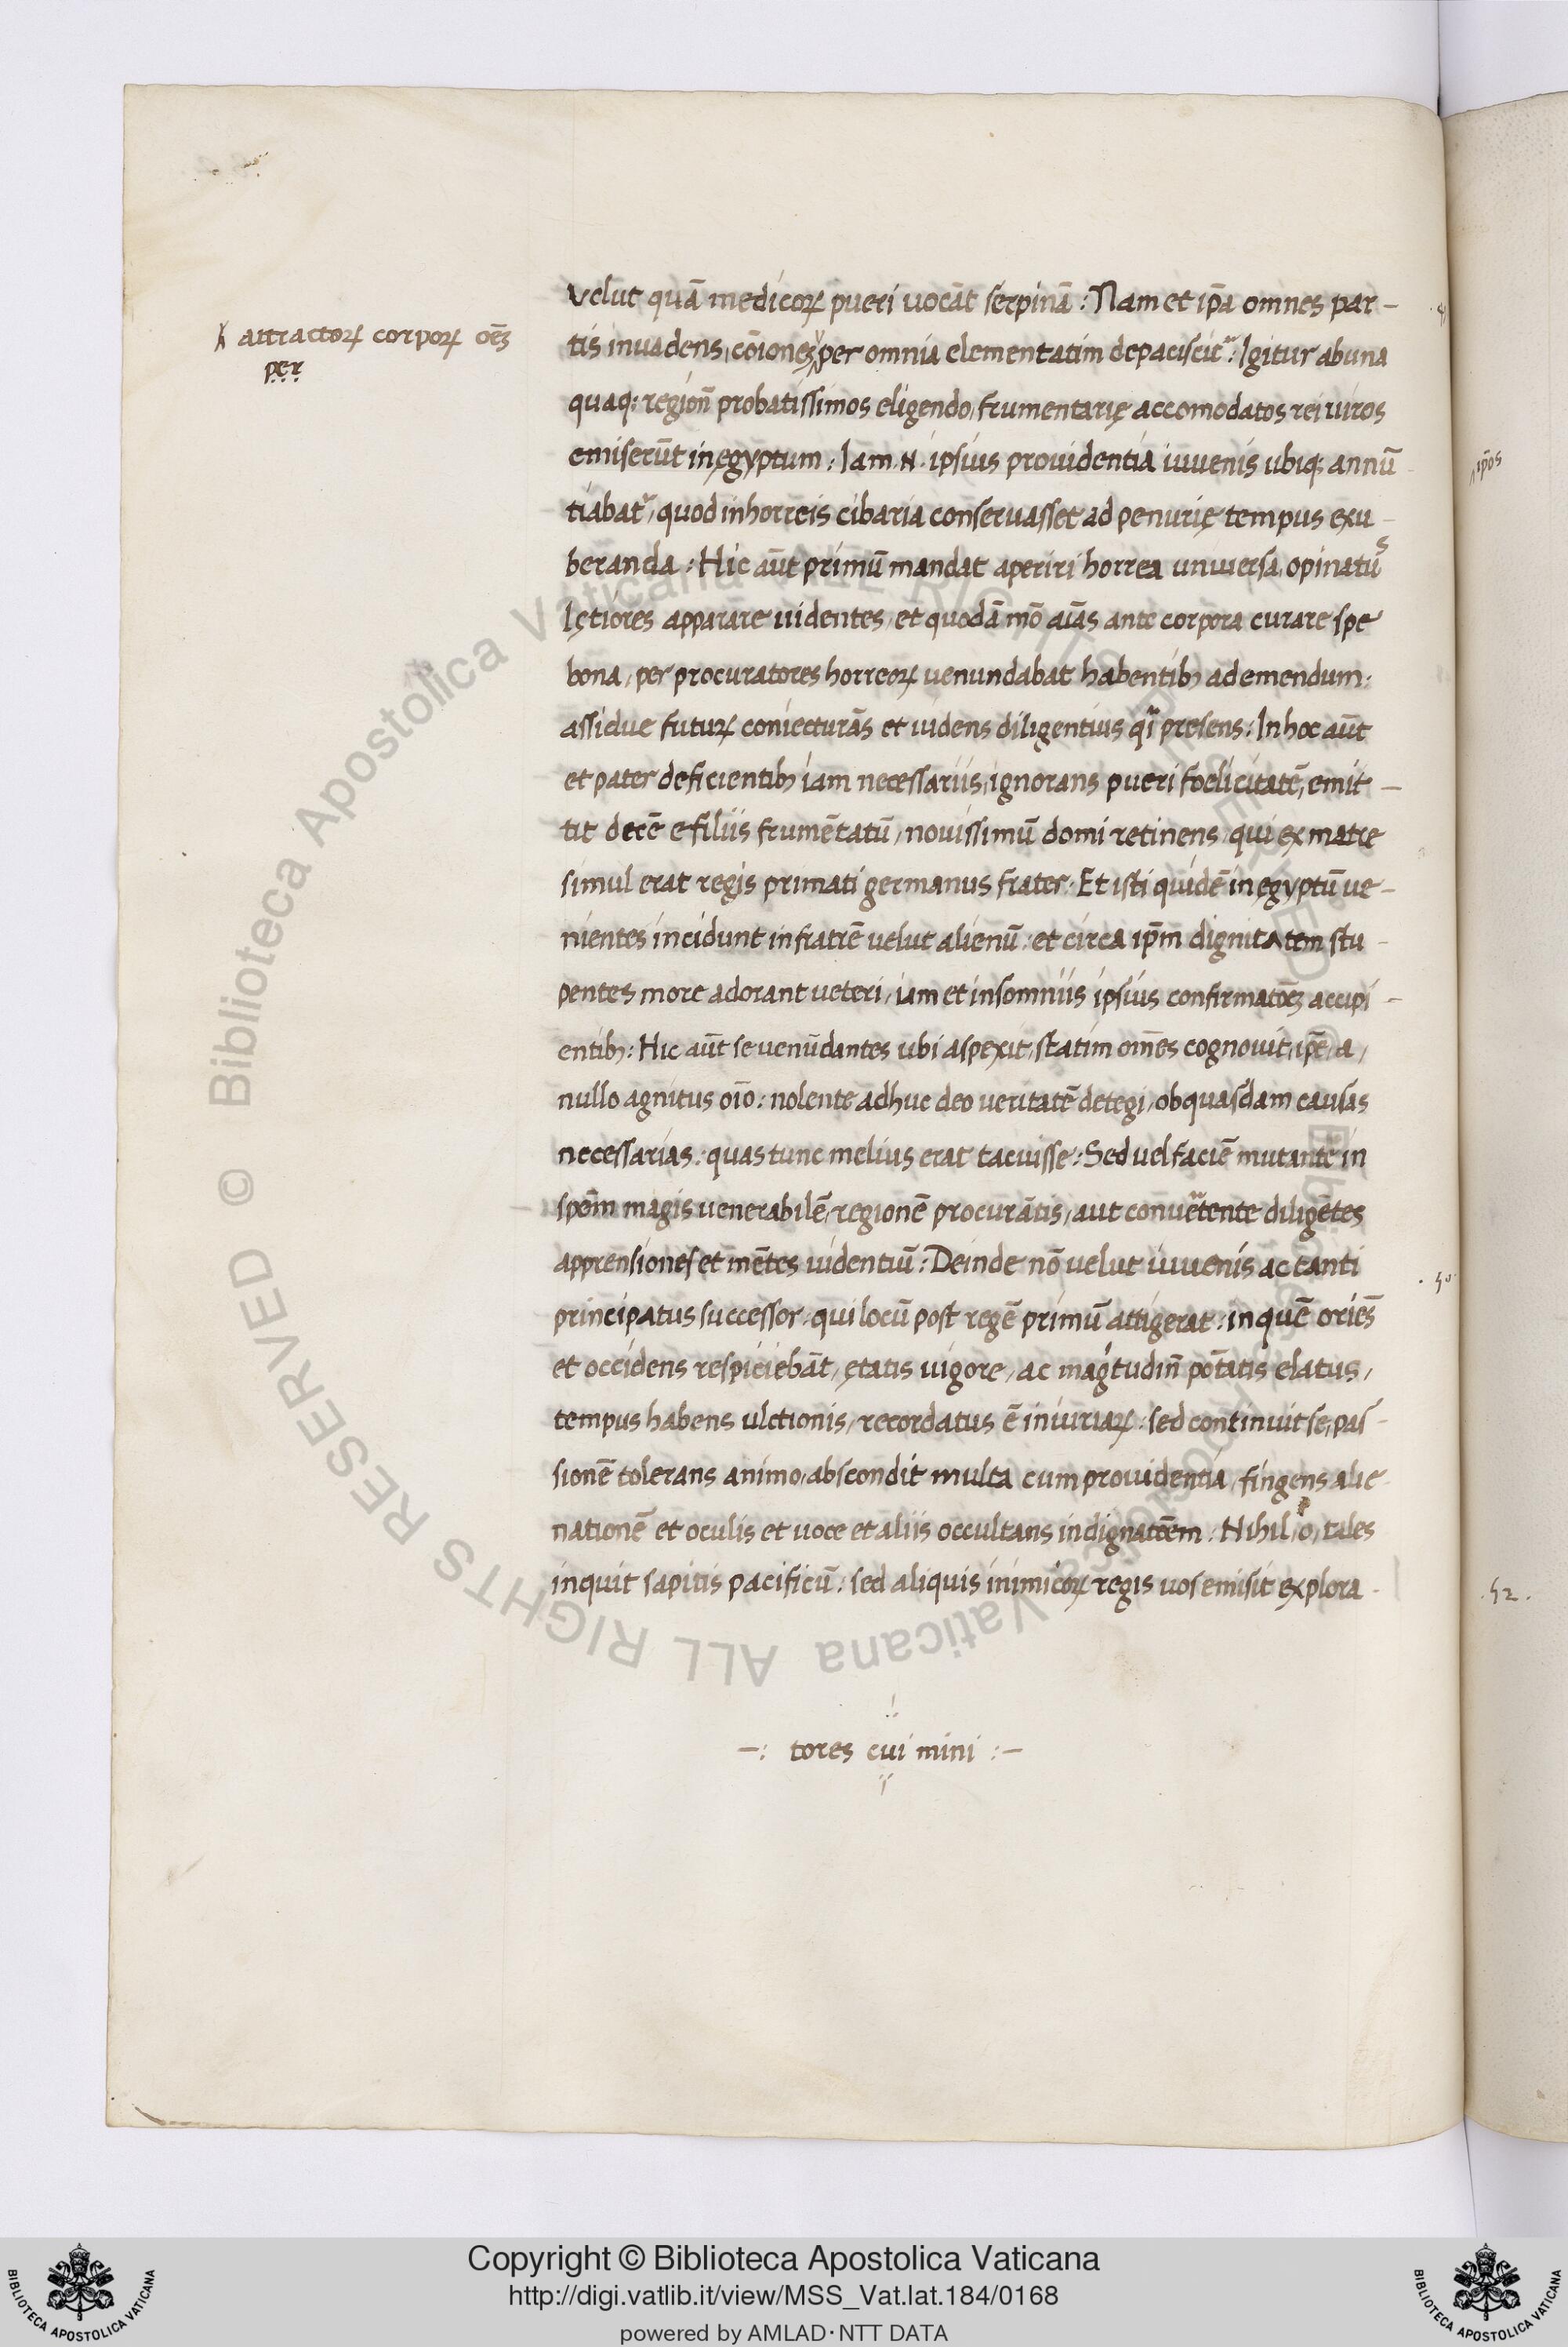 velut quā medicoꝝ pueri uocāt serpinā : Nam et ip̄a omnes par-
ꝉ attractoꝝ corpoꝝ oēs
per
tis inuadens, cōionē per omnia elementatim depaciscit : Igitur ab una
quaq: region̄ probatissimos eligendo, frumentarię accomodatos rei uiros
emiserūt in ęgyptum : Iam .N. ipsius prouidentia iuuenis ubiq; annū
tiabat, quod in horreis cibaria conseruasset ad penurię tempus exu-
beranda : Hic aūt primū mandat aperiri horrea uniuersa, opinatus
lętiores apparare uidentes, et quodā mō aīas ante corpora curare spe
bona, per procuratores horreoꝝ uenundabat habentibꝫ ad emendum:
assidue futuꝝ coniecturās et uidens diligentius qī presens : In hoc aūt
et pater deficientibꝫ iam necessariis, ignorans pueri foelicitatē, emit-
tit decē e filiis frumētatū, nouissimū domi retinens, qui ex matre
simul erat regis primati germanus frater. Et isti quidē in ęgyptū ue-
nientes incidunt in fratrē uelut alienū : et circa ip̄m dignitatem stu-
pentes more adorant ueteri, iam et insomniis ipsius confirmatōē accipi-
entibꝫ : Hic aūt se uenūdantes ubi aspexit, statim omēs cognouit, ip̄e, a,
nullo agnitus oīo : nolente adhuc deo ueritatē detegi, ob quasdam causas
necessarias : quas tunc melius erat tacuisse : Sed uel faciē mutante in
spēm magis uenerabilē, regionē procurātis, aut conuertente diligētes
apprensiones et mētes uidentiū : Deinde nō uelut iuuenis ac tanti
principatus successor : qui locū post regē primū attigerat : in quē oriēs
et occidens respiciebāt, ętatis uigore, ac magitudin̄ potātis elatus,
tempus habens ulctionis, recordatus ē iniuriaꝝ : sed continuit se, pas-
sionē tolerans animo, abscondit multa cum prouidentia, fingens alie-
nationē et oculis et uoce et aliis occultans indignatōem : Nihil, o, tales
inquit sapitis pacificū : sed aliquis inimicoꝝ regis uos emisit explora-
-: tores cui mini :-
ip̄os
.50.
.52.
Copyright © Biblioteca Apostolica Vaticana
http://digi.vatlib.it/view/MSS_Vat.lat.184/0168
powered by AMLAD·NTT DATA
BIBLIOTECA APOSTOLICA VATICANA
BIBLIOTECA APOSTOLICA VATICANA
© Biblioteca Apostolica Vaticana ALL RIGHTS RESERVED